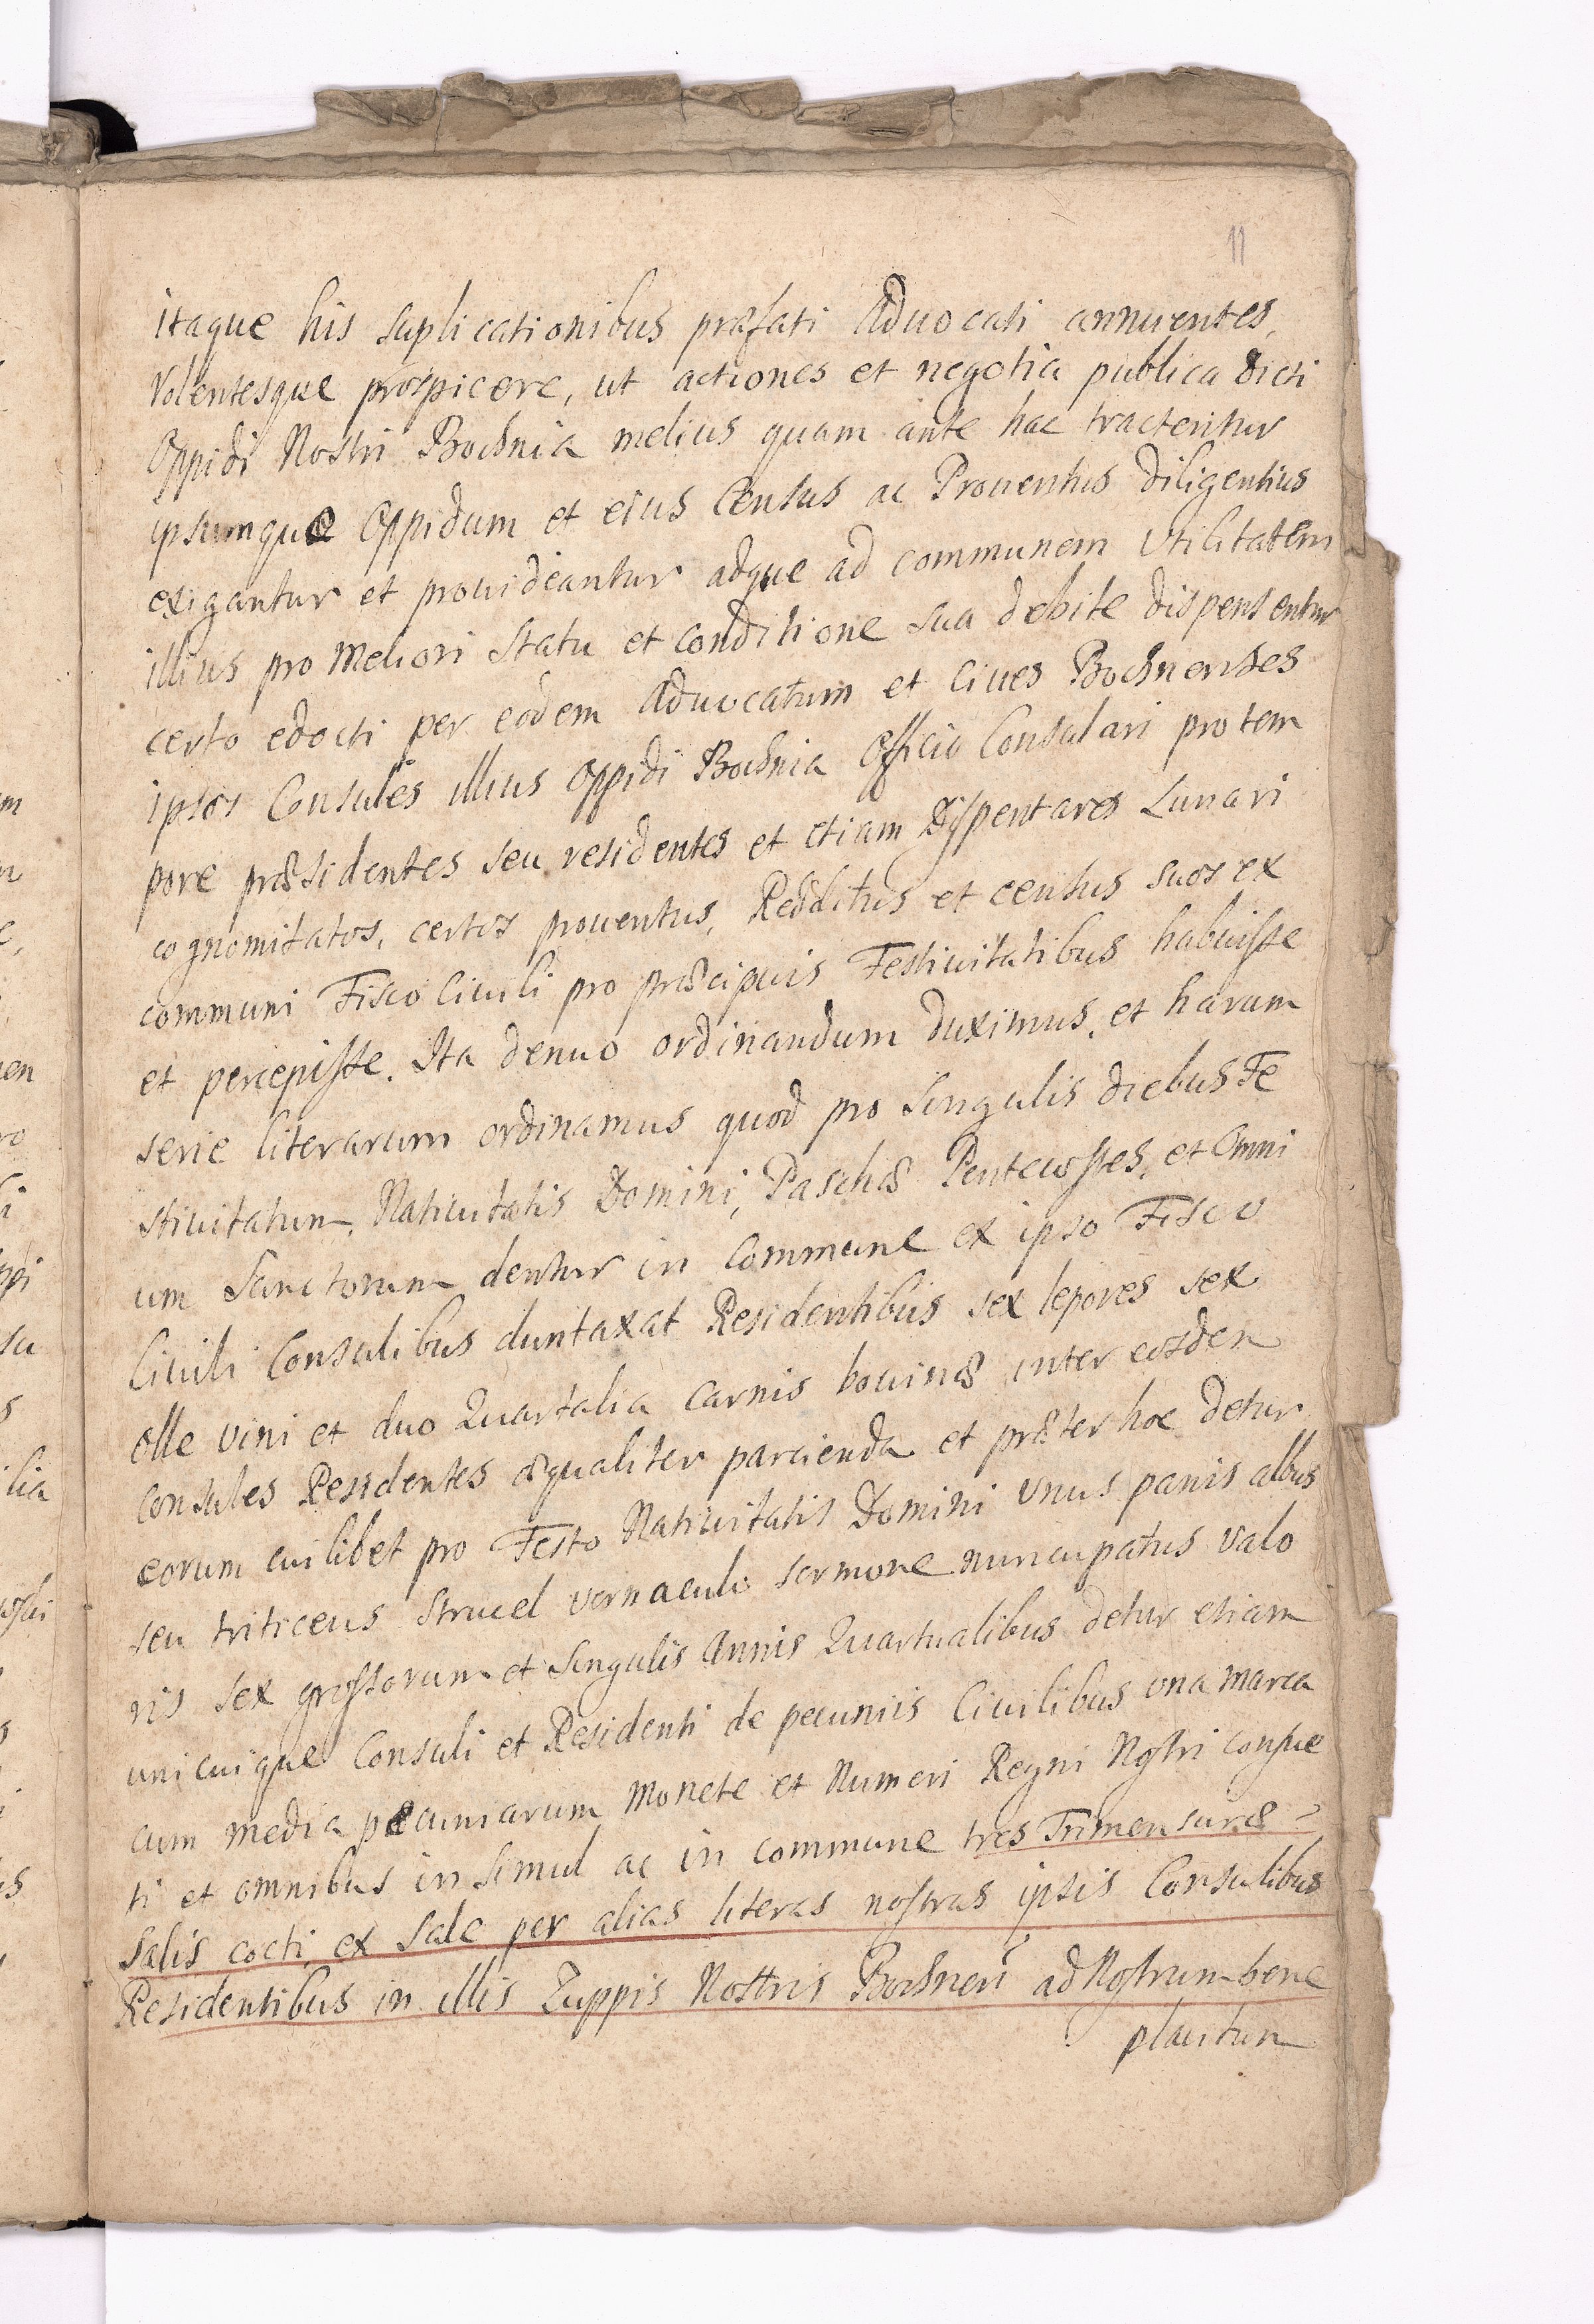 11
itaque his suplicationibus præfati Aduocati annuentes,
Volentesque prospicere, ut actiones et negotia publica dicti
Oppidi Nostri Bochnia melius quam ante hac tractentur
ipsumque Oppidum et eius Census ac Prouentus diligentius
exigantur et prouideantur adque ad communem Utilitatem
illius pro Meliori Statu et conditione sua debite dispensentur
certo edocti per eodem Aduocatum et Ciues Bochnenses
ipsos Consules illius Oppidi Bochnia Officio Consulari pro tem
pore præsidentes seu residentes et etiam Lunari
cognomitatos, certos prouentus, Redditus et census suos ex
communi Fisco Ciuili pro præcipuis Festiuitatibus habuisse
et percepisse. Ita denuo ordinandum duximus, et harum
serie literarum ordinamus quod pro singulis diebus Fe
stiuitatum, Natiuitatis Domini, Paschæ Pentecostes, et Omni
um Sanctorum dentur in Commune ex ipso Fisco
Ciuili Consulibus duntaxat Residentibus sex lepores sex
olle vini et duo Quartalia carnis bouinæ inter eosdem
Consules Residentes æqualiter parcienda et præter hoc detur
eorum cuilibet pro Festo Natiuitatis Domini Unus panis albus
seu triticeus Strucel vernaculo sermone nuncupatus Valo
ris sex grossorum et singulis Annis Quartualibus detur etiam
unicuique Consuli et Residenti de pecuniis Ciuilibus una marca
cum media pecuniarum Monete et Numeri Regni Nostri consue
ti et omnibus in simul ac in commune tres Trimensuræ
Salis cocti ex Sale per alias literas nostras ipsis Consulibus
Residentibus in illis Zuppis Nostris Bochnen ad Nostrum bene
placitum